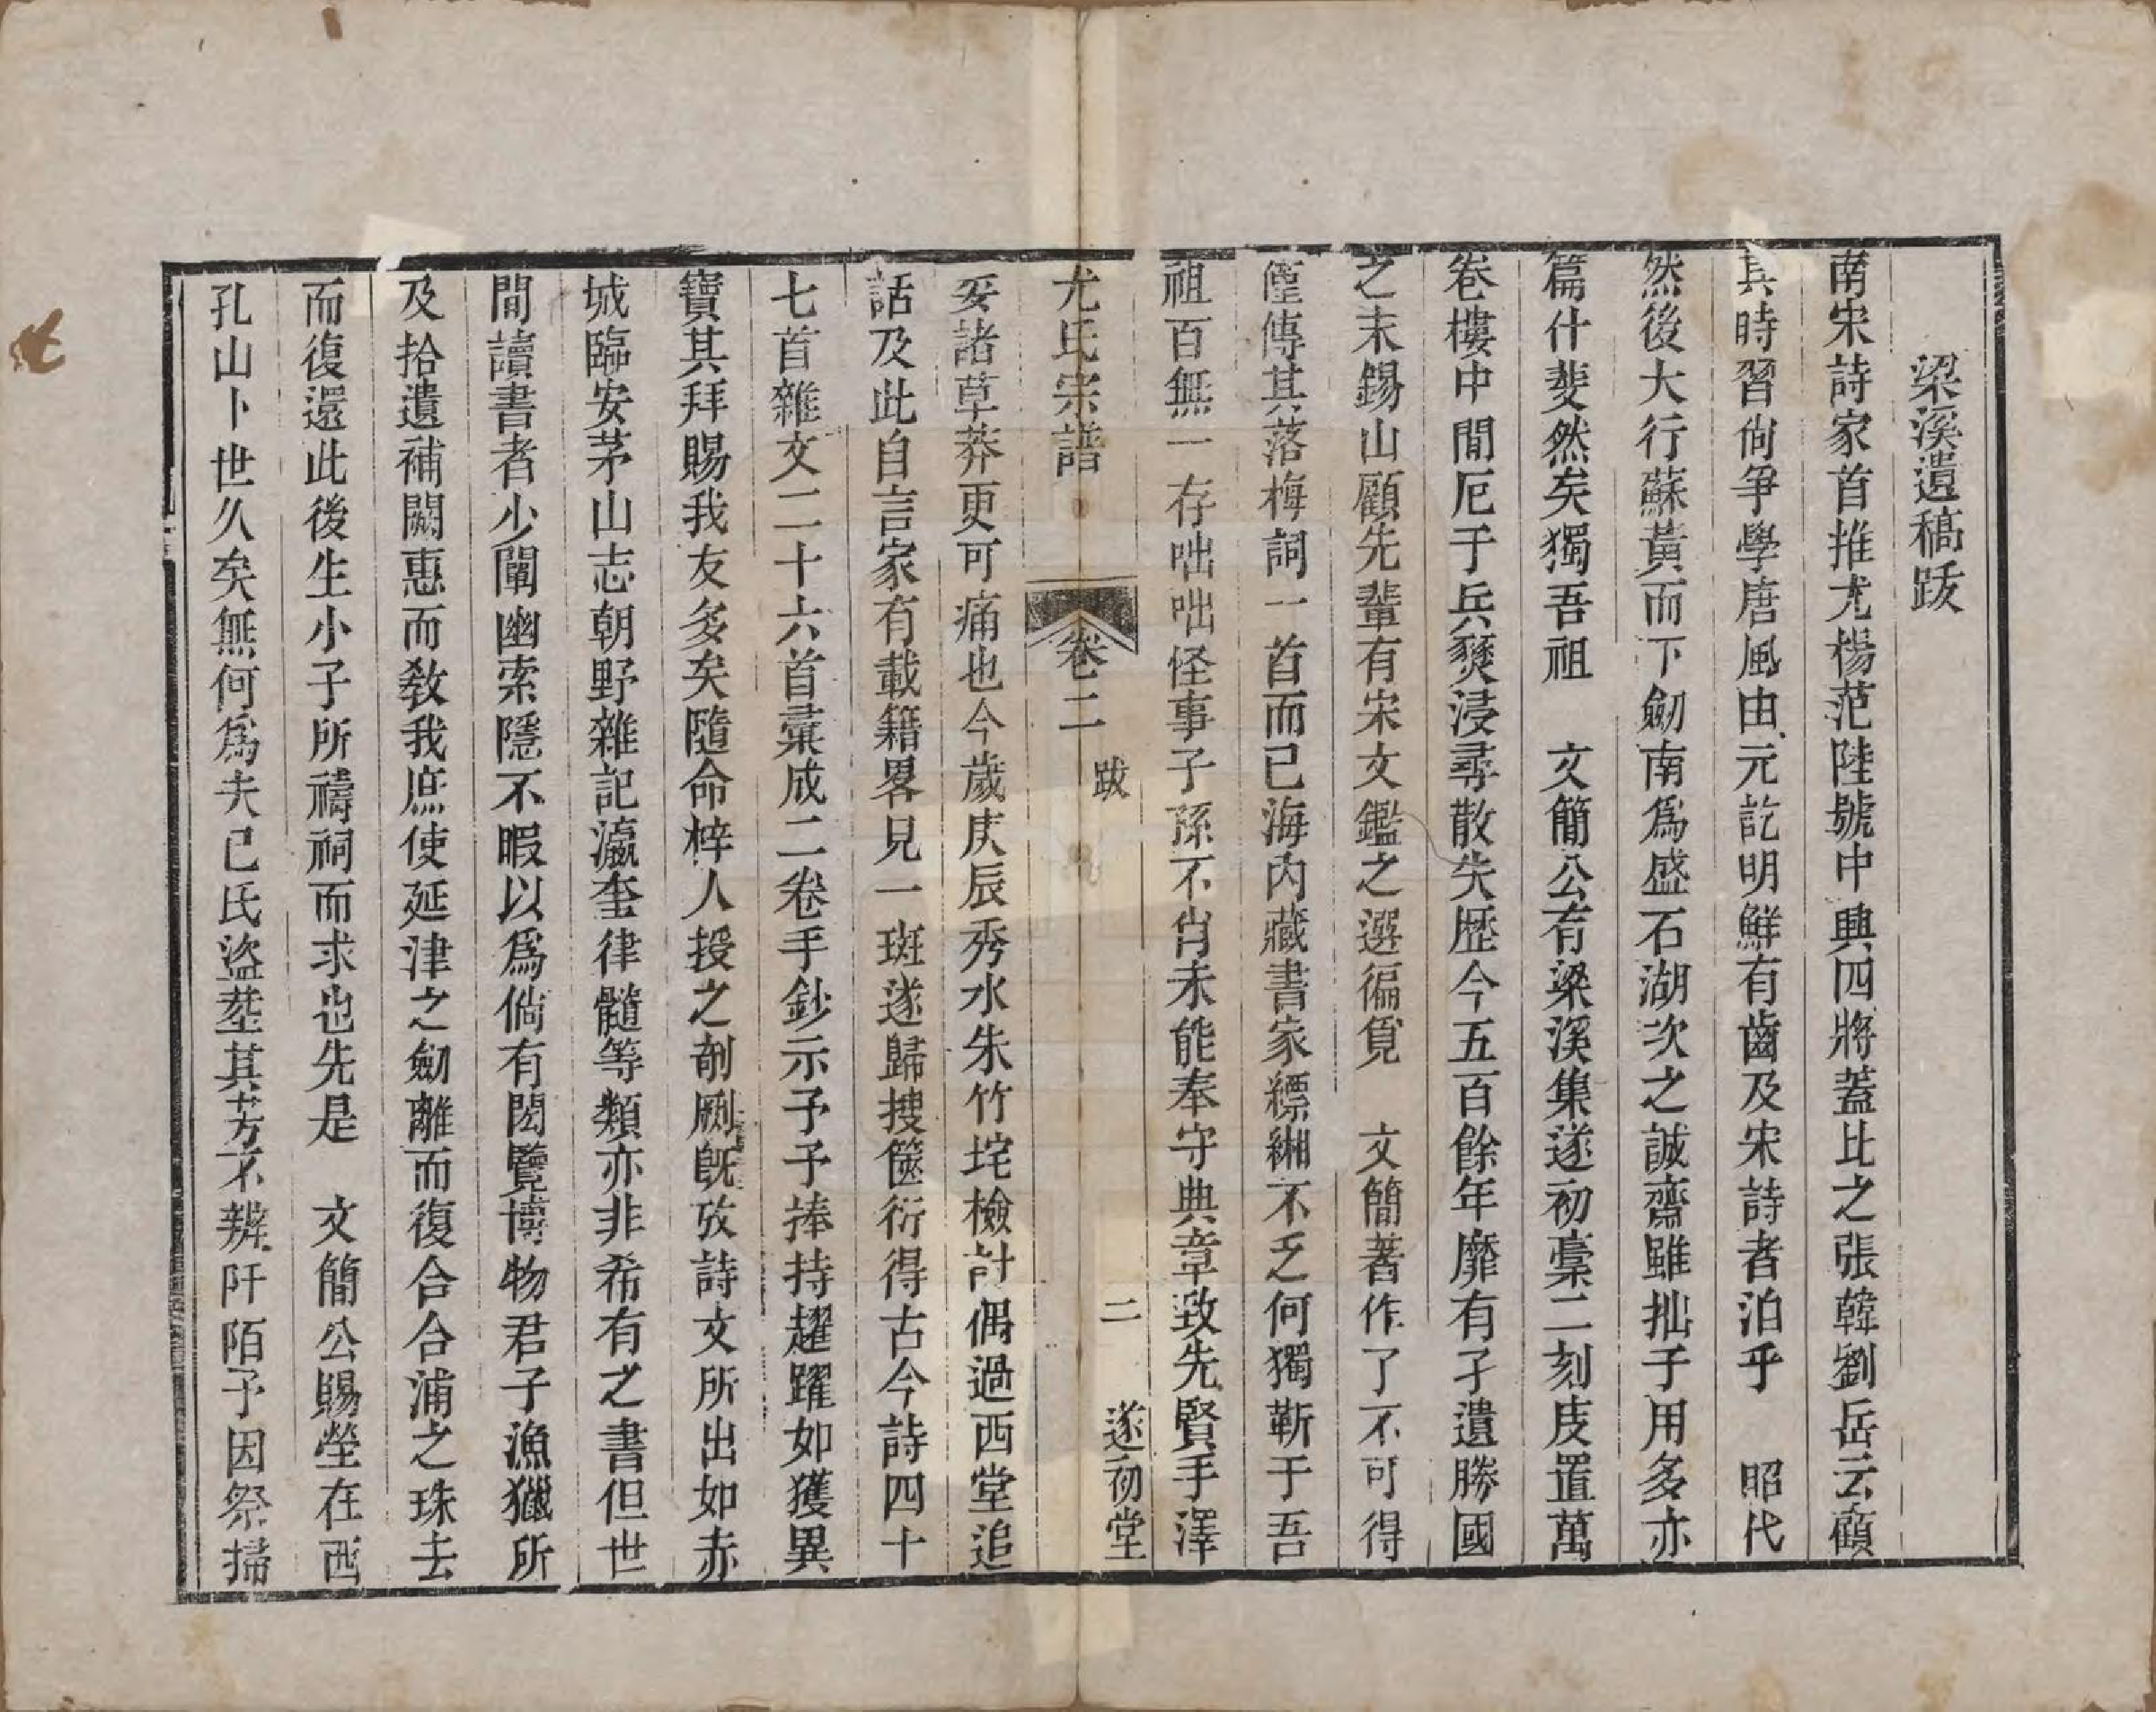 梁溪遺稿跋
南宋詩家首推尤楊范陸號中興四將蓋比之張韓劉岳云顧
其時習尙爭學唐風由元訖明鮮有齒及宋詩者洎乎 昭代
然後大行蘇黃而下劒南爲盛石湖次之誠齋雖拙于用多亦
篇什斐然矣獨吾祖 文簡公有梁溪集遂初稾二刻庋置萬
卷樓中閒厄于兵燹浸尋散失歷今五百餘年靡有孑遺勝國
之末錫山顧先輩有宋文鑑之選徧覓 文簡著作了不可得
僅傳其落梅詞一首而已海內藏書家縹緗不乏何獨靳于吾
祖百無一存咄咄怪事子孫不肖未能奉守典章致先賢手澤
尤氏宗譜 卷二 跋 二 遂初堂
妥諸草莽更可痛也今歲庚辰秀水朱竹垞檢討偶過西堂追
話及此自言家有載籍畧見一斑遂歸搜篋衍得古今詩四十
七首雜文二十六首彙成二卷手鈔示予予捧持趯躍如獲異
寶其拜賜我友多矣隨命梓人授之剞劂旣攷詩文所出如赤
城臨安茅山志朝野雜記瀛奎律髓等類亦非希有之書但世
閒讀書者少闡幽索隱不暇以爲倘有閎覽博物君子漁獵所
及拾遺補闕惠而敎我庶使延津之劒離而復合合浦之珠去
而復還此後生小子所禱祠而求也先是 文簡公賜塋在西
孔山卜世久矣無何爲夫已氏盜塟其旁不辨阡陌予因祭掃